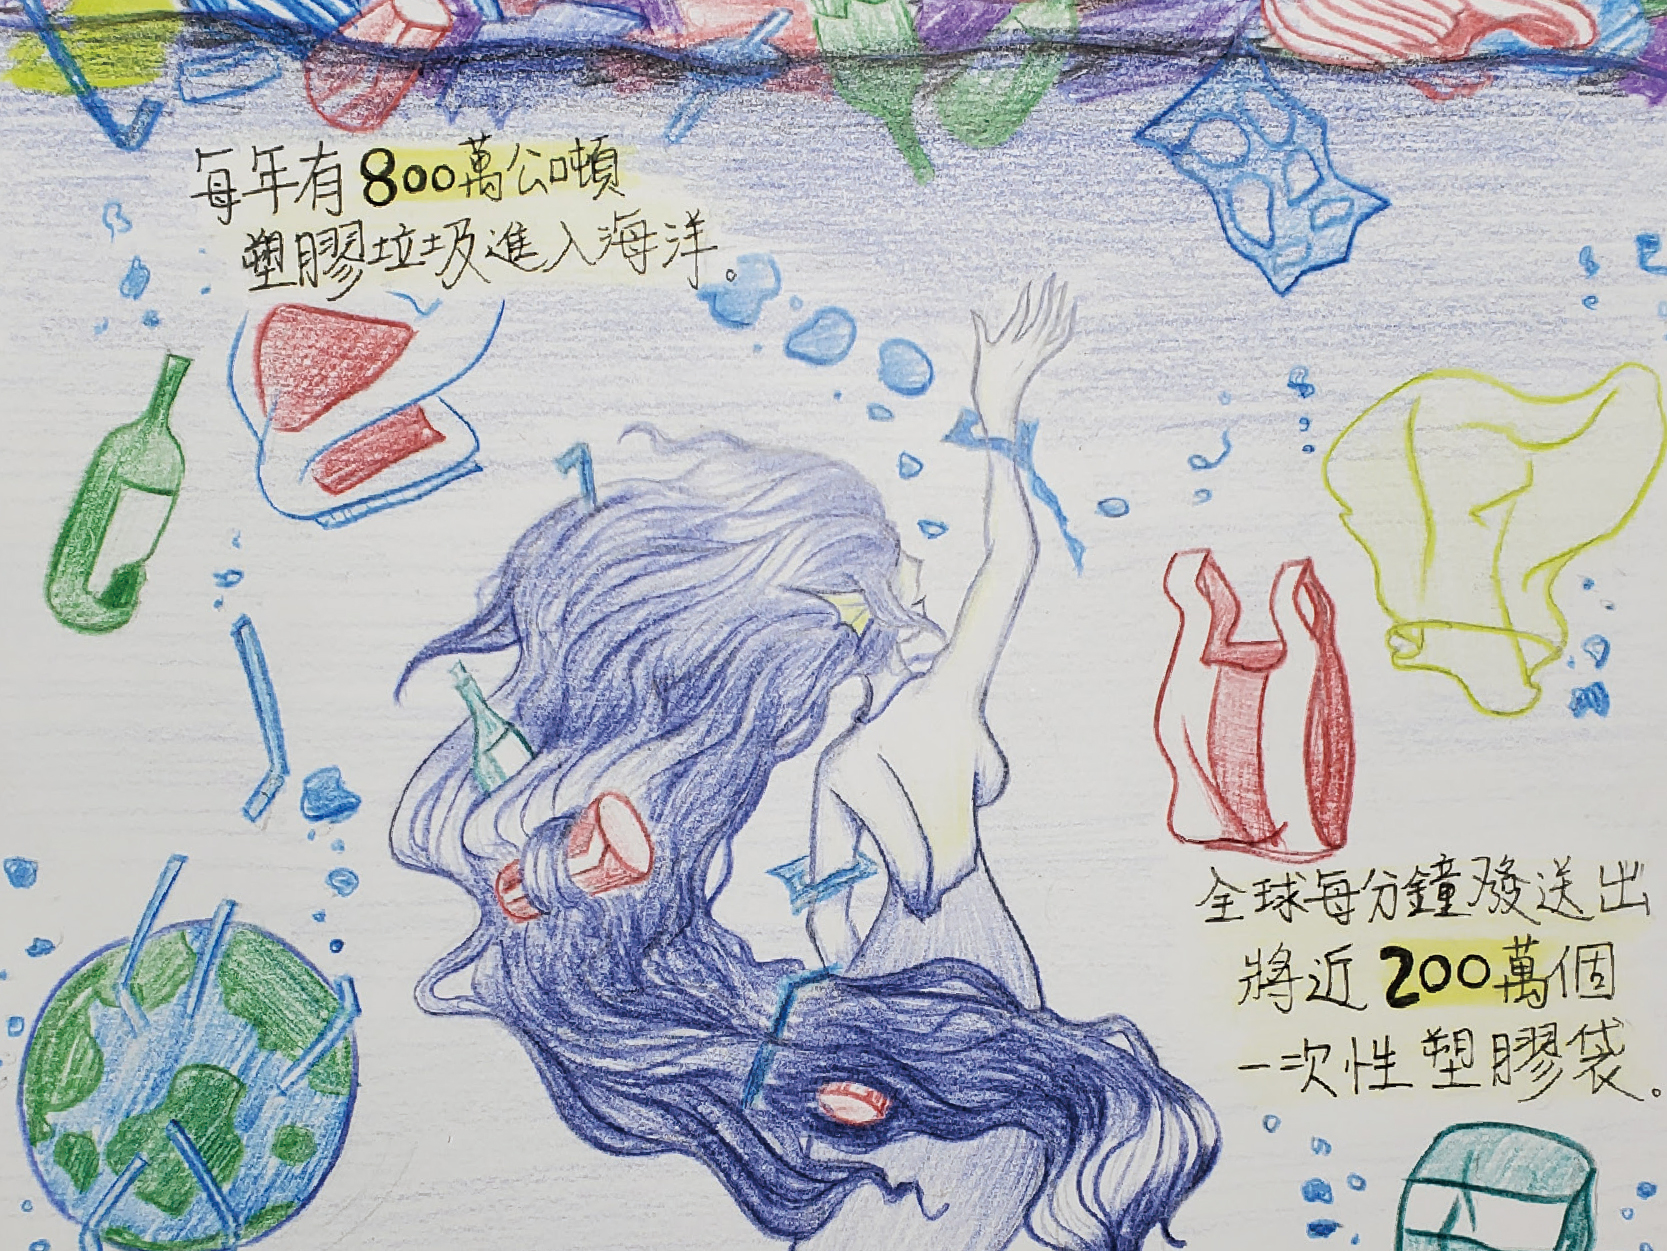 每年有800萬公噸
塑膠垃圾進入海洋。
全球每分鐘發送出
將近200萬個
一次性塑膠袋。